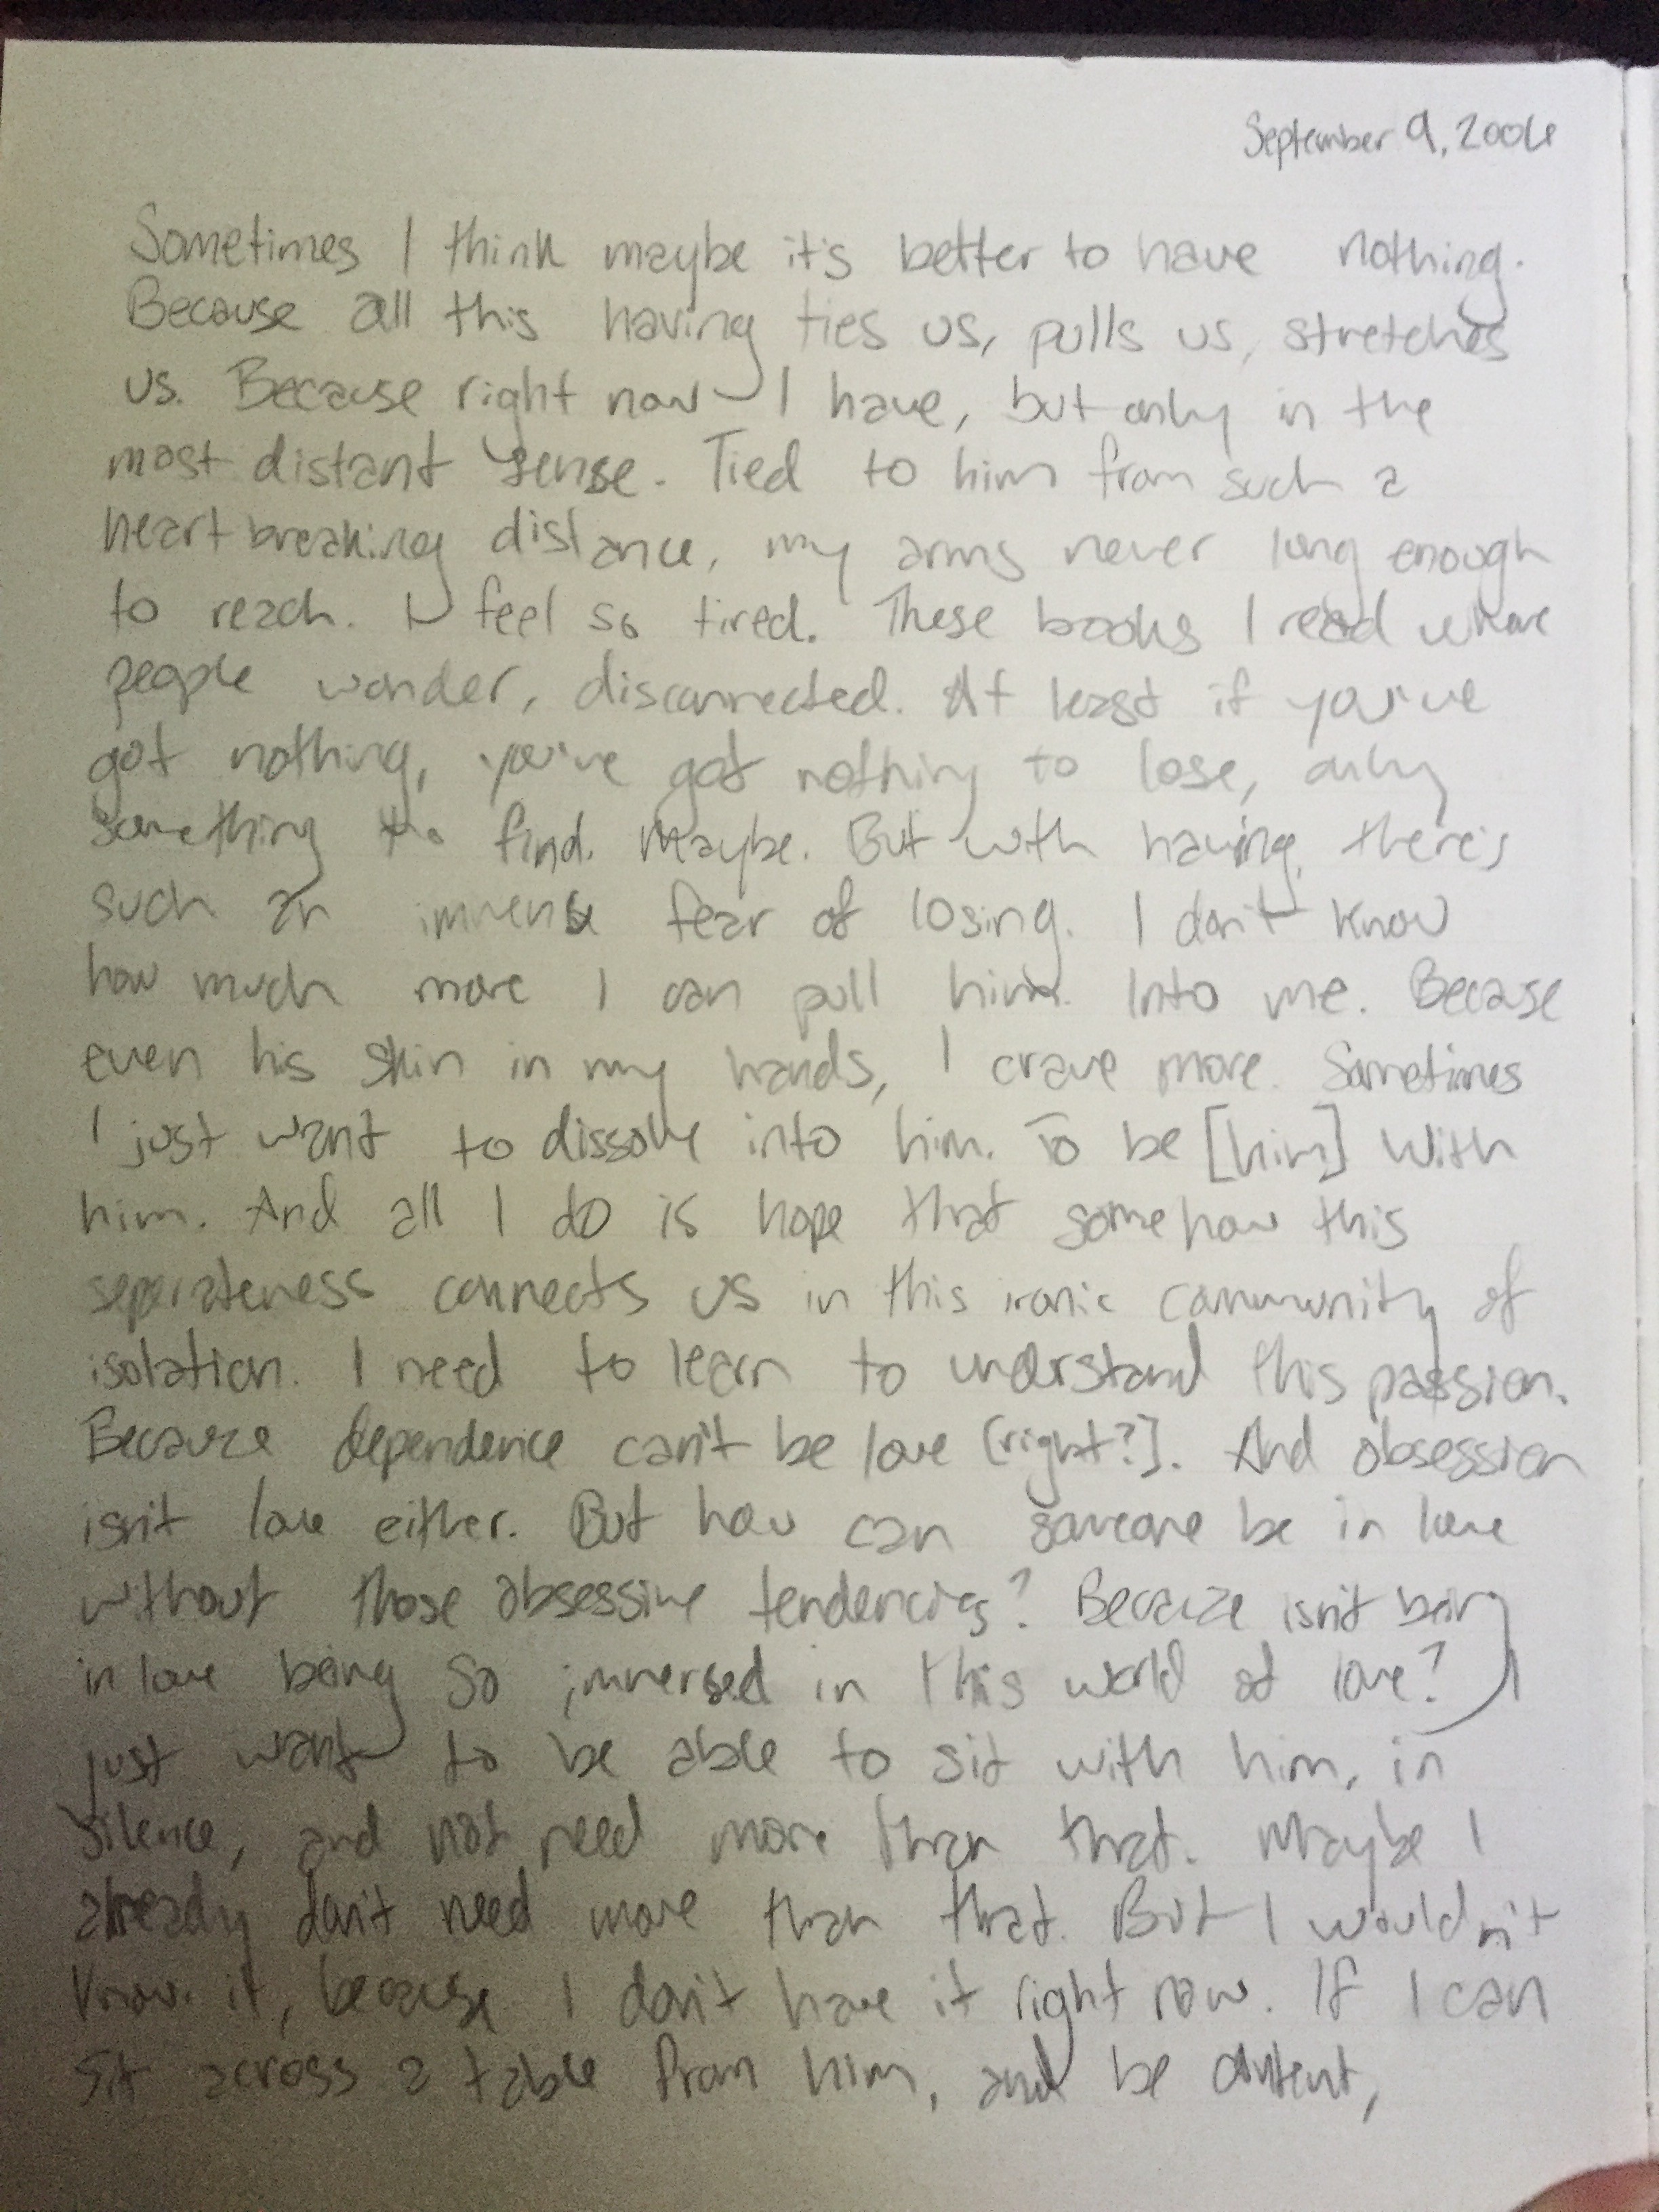 September 9, 2006
Sometimes I think maybe it's better to have nothing.
Because all this having ties us, pulls us, stretches
us. Because right now I have, but only in the
most distant sense. Tied to him from such a
heartbreaking distance, my arms never long enough
to reach. I feel so tired. These books I read where
people wander, disconnected. At least if you've
got nothing, you've got nothing to lose, only
something to find. Maybe. But with having, there's
such an immense fear of losing. I don't know
how much more I can pull him. Into me. Because
even his skin in my hands, I crave more. Sometimes
I just want to dissolve into him. To be [him] with
him. And all I do is hope that somehow this
separateness connects us in this ironic community of
isolation. I need to learn to understand this passion.
Because dependence can't be love [right?]. And obsession
isn't love either. But how can someone be in love
without those obsessive tendencies? Because isn't being
in love being so immersed in this world of love? I
just want to be able to sit with him, in
silence, and not need more than that. Maybe I
already don't need more than that. But I wouldn't
know it, because I don't have it right now. If I can
sit across a table from him, and be content,